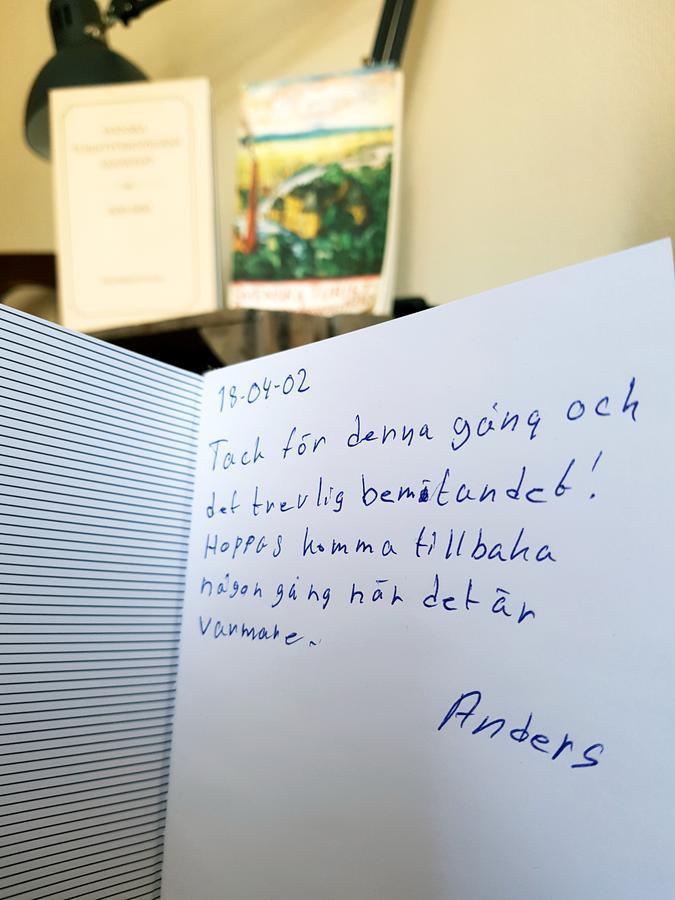 SVENSKA
18-04-02
Tack för denna gång och
det trevlig bemötandet!
Hoppas komma tillbaka
någon gång när det är
varmare.
Anders